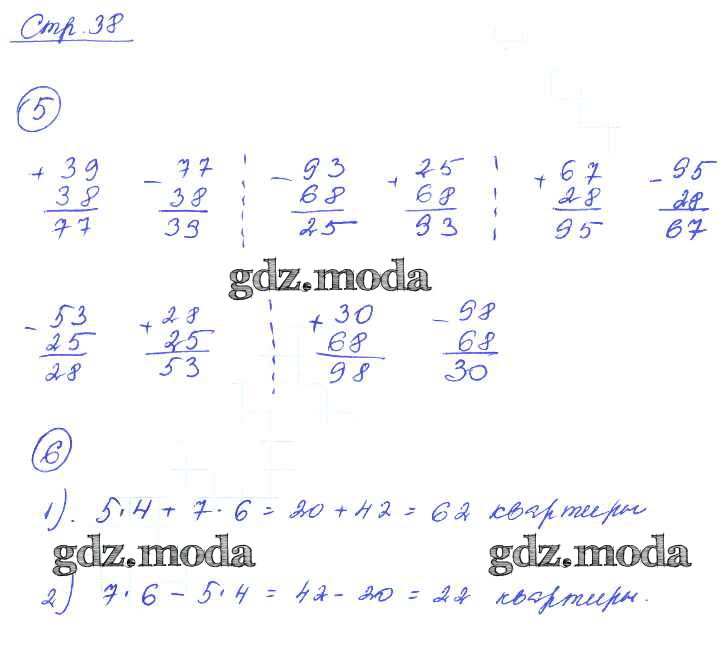 Стр. 38
5
+ 39 - 77 - 93 + 25 + 67 - 95
38 38 68 68 28 28
77 39 25 93 95 67
gdz.moda
- 53 + 28 + 30 - 98
25 25 68 68
28 53 98 30
6
1). 5·4 + 7·6 = 20 + 42 = 62 квартиры
gdz.moda gdz.moda
2) 7·6 - 5·4 = 42 - 20 = 22 квартиры.